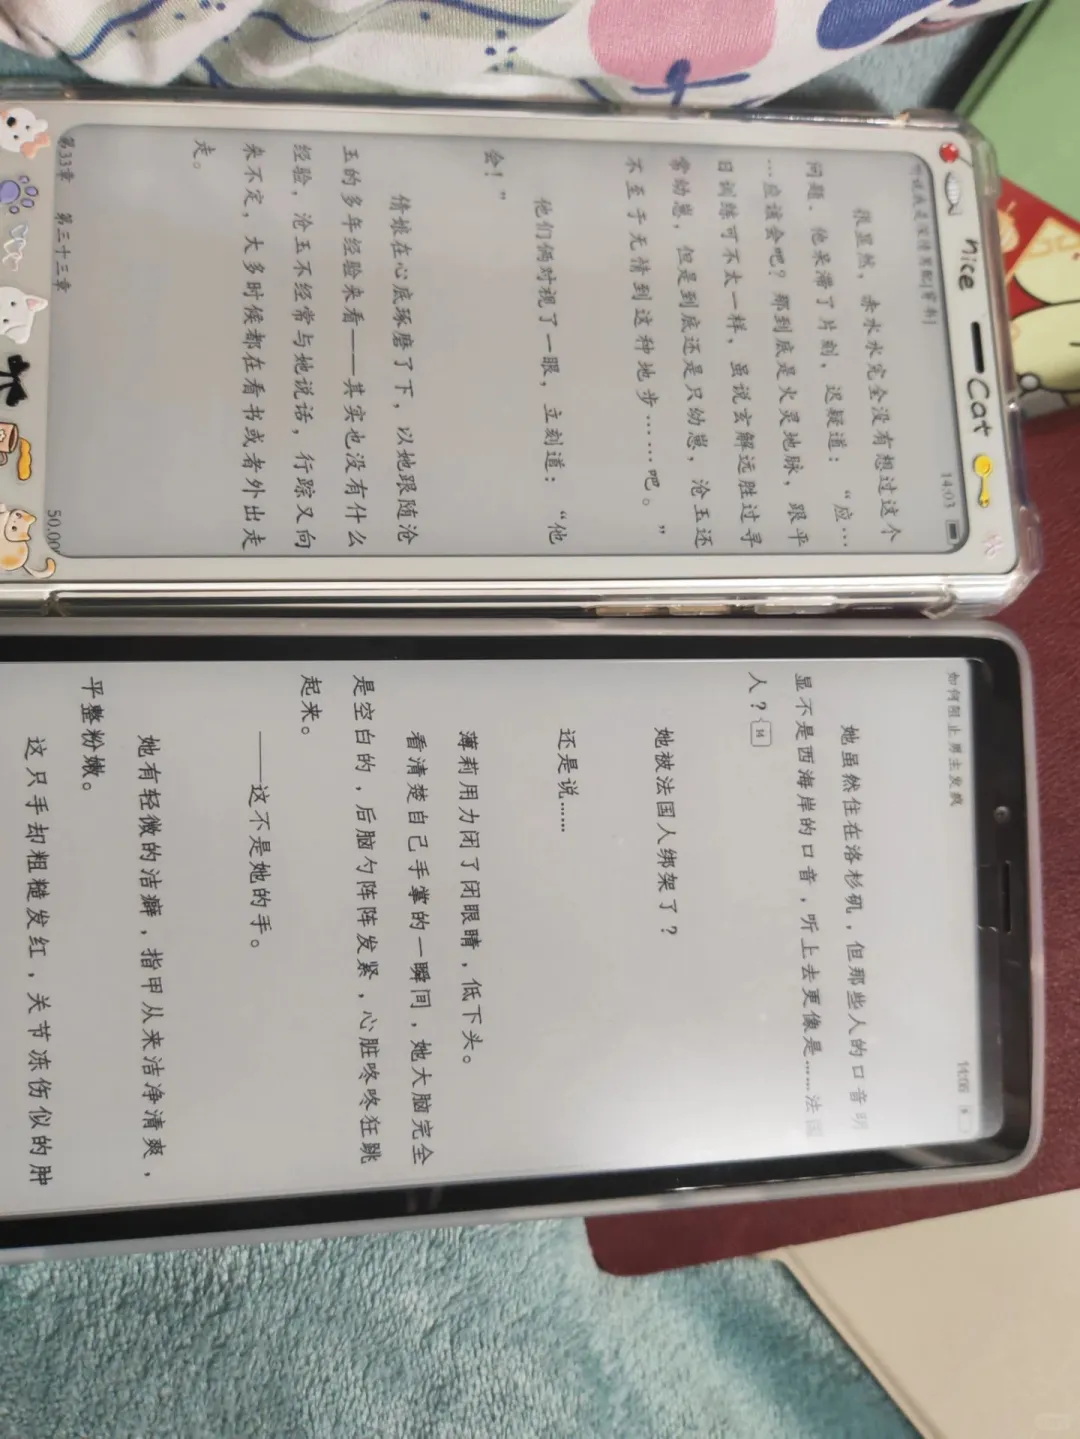 听说我是深情男配[穿书]
14:03
很显然，赤水水完全没有想过这个
问题，他呆滞了片刻，迟疑道：“应…
…应该会吧？那到底是火灵地脉，跟平
日训练可不太一样，虽说玄解远胜过寻
常幼崽，但是到底还是只幼崽，沧玉还
不至于无情到这种地步……吧。”
他们俩对视了一眼，立刻道：“他
会！”
倩娘在心底琢磨了下，以她跟随沧
玉的多年经验来看——其实也没有什么
经验，沧玉不经常与她说话，行踪又向
来不定，大多时候都在看书或者外出走
走。
第33章 第三十三章
50.00
nice
Cat
如何阻止男主发疯
14:06
她虽然住在洛杉矶，但那些人的口音明
显不是西海岸的口音，听上去更像是……法国
人？14
她被法国人绑架了？
还是说……
薄莉用力闭了闭眼睛，低下头。
看清楚自己手掌的一瞬间，她大脑完全
是空白的，后脑勺阵阵发紧，心脏咚咚狂跳
起来。
——这不是她的手。
她有轻微的洁癖，指甲从来洁净清爽，
平整粉嫩。
这只手却粗糙发红，关节冻伤似的肿